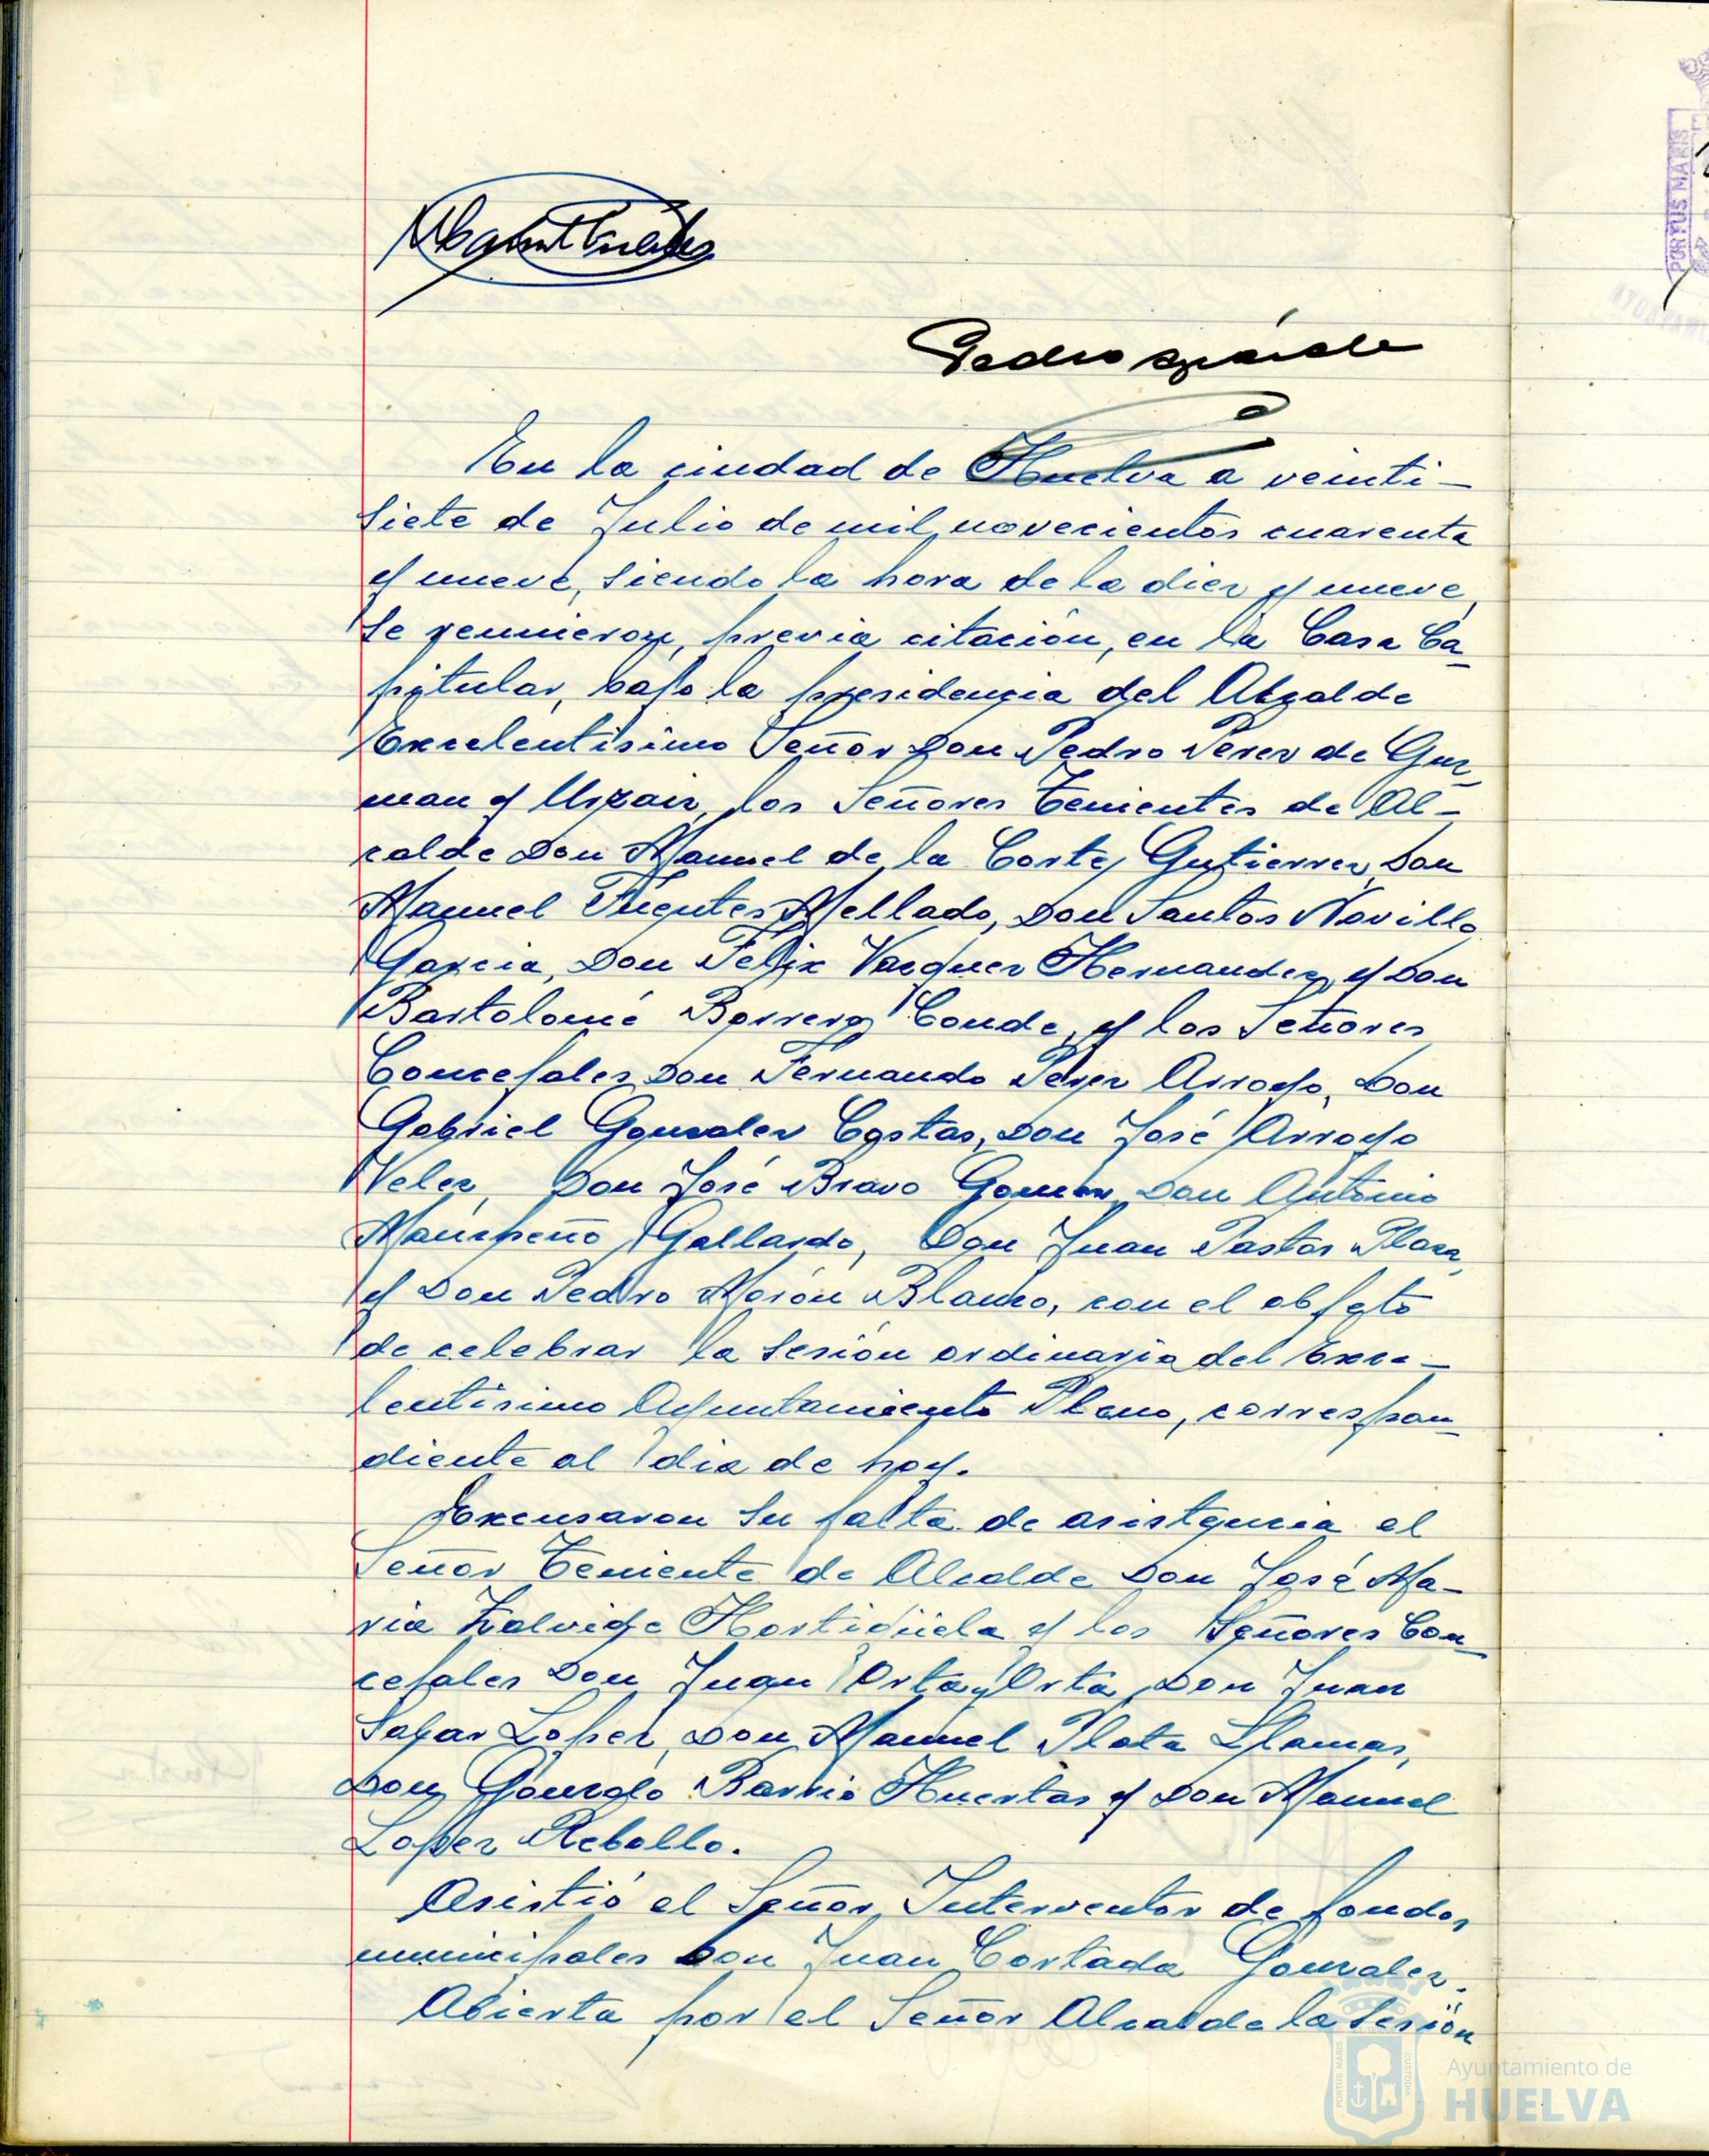 En la ciudad de Huelva a veinti-
siete de Julio de mil novecientos cuarenta
y nueve, siendo la hora de la diez y nueve,
se reunieron, previa citación, en la Casa Ca-
pitular, bajo la presidencia del Alcalde
Excelentisimo Señor Don Pedro Perez de Guz-
man y Urzaiz, los Señores Tenientes de Al-
calde Don Manuel de la Corte Gutierrez, Don
Manuel Fuentes Mellado, Don Santos Novillo
Garcia, Don Felix Vazquez Hernandez y Don
Bartolomé Borrero Conde, y los Señores
Concejales Don Fernando Perez Arroyo, Don
Gabriel Gonzalez Costas, Don José Arroyo
Velez, Don José Bravo Gomez, Don Antonio
Gallardo, Don Juan Pastor Plaza,
y Don Pedro Morón Blanco, con el objeto
de celebrar la sesión ordinaria del Exce-
lentisimo Ayuntamiento Pleno, correspon-
diente al dia de hoy.
Excusaron su falta de asistencia el
Señor Teniente de Alcalde Don José Ma-
ria Hortigüela y los Señores Con-
cejales Don Juan Orta y Orta, Don Juan
Lopez, Don Manuel Plata Llamas,
Don Gonzalo Barrio Huertas y Don Manuel
Lopez Rebollo.
Asistió el Señor Interventor de fondos
municipales Don Juan Cortada Gonzalez.
Abierta por el Señor Alcalde la sesión
PORTUS MARIS
PORTUS MARIS
CUSTODIA
Ayuntamiento de
HUELVA